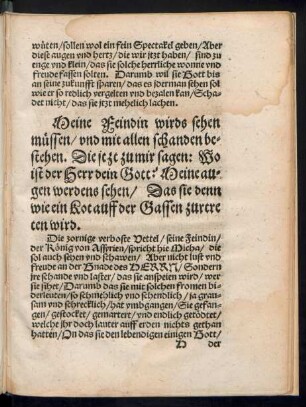 wüten/sollen wol ein fein Spectakel geben/Aber
diese augen vnd hertz/die wir itzt haben/sind zu
enge vnd klein/das sie solche herrliche wonne vnd
freude fassen solten. Darumb wil sie Gott bis
an seine zukunfft sparen/das es jederman sehen sol
wie er so redlich vergelten vnd bezalen kan/Scha-
det nicht/das sie jtzt mehelich lachen.
Meine Feindin wirds sehen
müssen/vnd mit allen schanden be-
stehen. Die jetzt zu mir sagen: Wo
ist der Herr dein Gott? Meine au-
gen werdens sehen/Das sie denn
wie ein Kot auff der Gassen zutre-
ten wird.
Die zornige verboste Vettel/seine Feindin/
der König von Assyrien/spricht hie Micha/die
sol auch sehen vnd schawen/Aber nicht lust vnd
freude an der Gnade des HERRN/Sondern
jre schande vnd laster/das sie anspeien wird/wer
sie sihet/Darumb das sie mit solchen fromen bi-
derleuten/so schmehlich vnd schendlich/ja grau-
sam vnd schrecklich/hat vmbgangen/Sie gefan-
gen/gestocket/gemartert/vnd endlich getödtet/
welche jhr doch lauter auff erden nichts gethan
hatten/On das sie den lebendigen einigen Gott/
D der